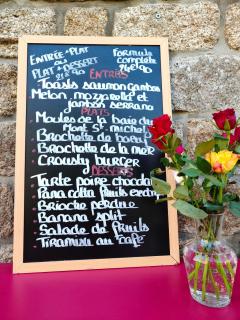 ENTRÉE + PLAT
OU
PLAT + DESSERT
21€90
Formule
complète
26€90
ENTRÉES
Toasts saumon gambas
Melon mozzarella et
jambon serrano
PLATS
Moules de la baie du
Mont St-michel
Brochette de boeuf
Brochette de la mer
Crousty burger
DESSERTS
Tarte poire chocolat
Panacotta fruits exo
Brioche perdue
Banana split
Salade de fruits
Tiramisu au café